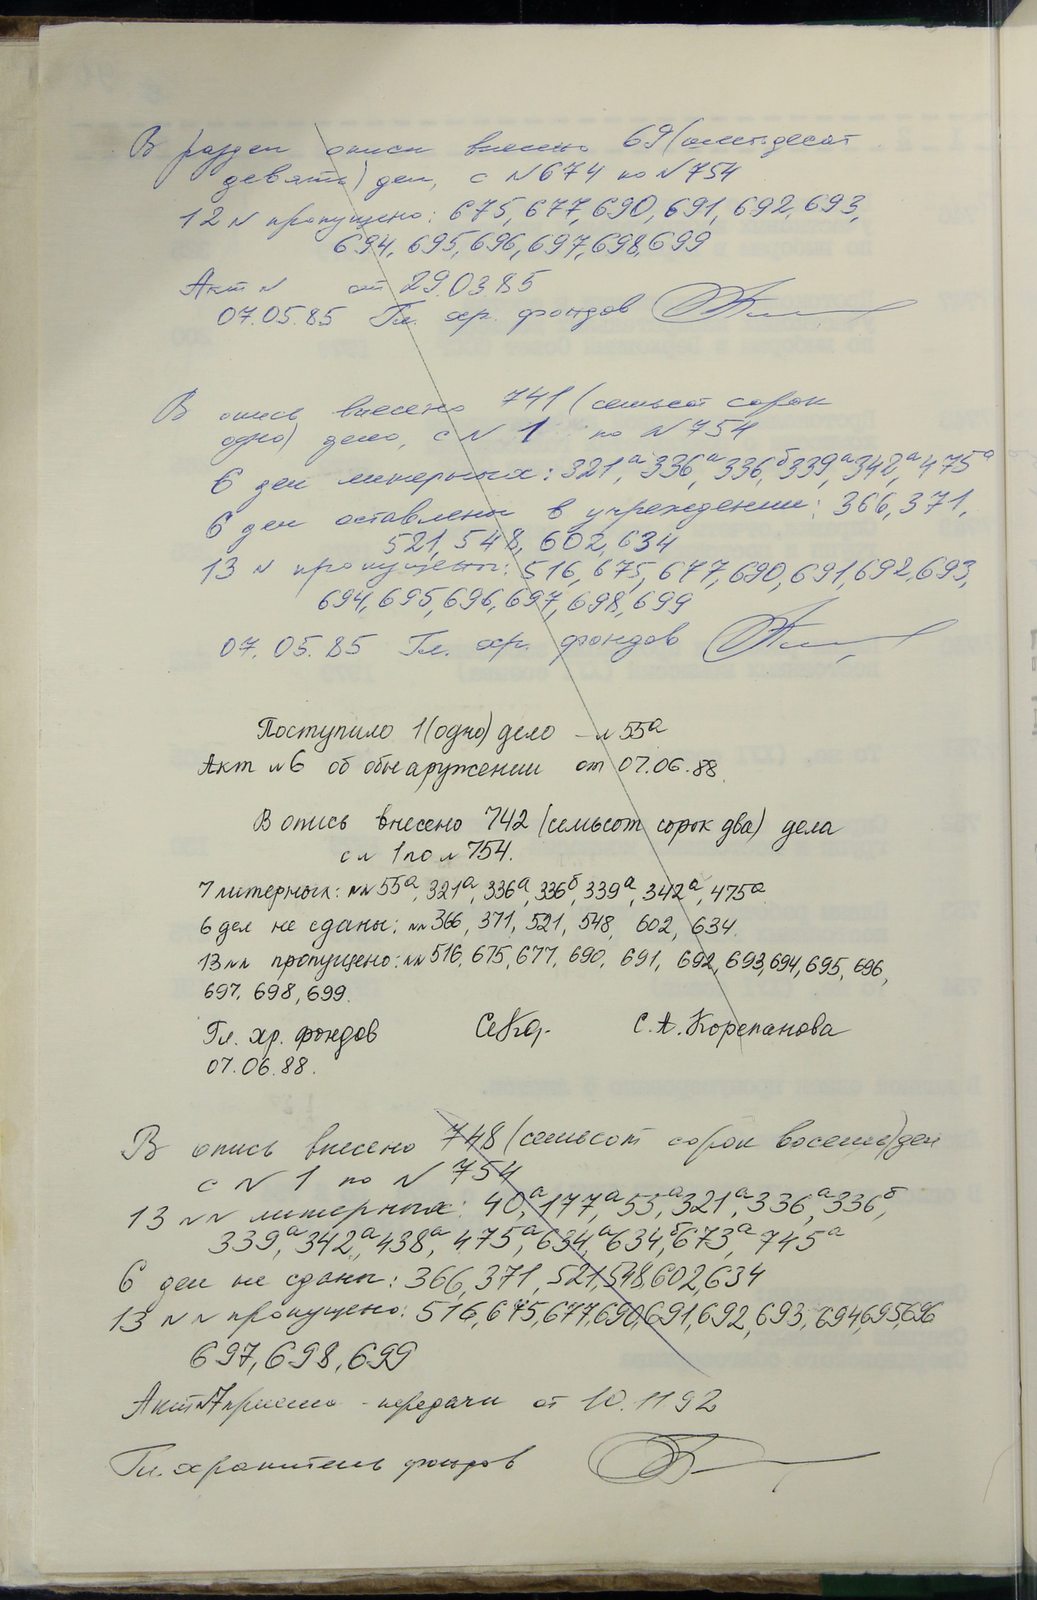 В раздел описи внесено 69 (шестьдесят
девять) дел, с N 674 по N 754
12 N пропущено: 675, 677, 690, 691, 692, 693,
694, 695, 696, 697, 698, 699
Акт N от 29.03.85
07.05.85 Гл. хр. фондов
В опись внесено 741 (семьсот сорок
одно) дело, с N 1 по N 754
6 дел литерных: 321а, 336а, 336б, 339а, 342а, 475а
6 дел оставлены в учреждении: 366, 371,
521, 548, 602, 634
13 N пропущены: 516, 675, 677, 690, 691, 692, 693,
694, 695, 696, 697, 698, 699
07.05.85 Гл. хр. фондов
Поступило 1 (одно) дело - N 55а
Акт N 6 об обнаружении от 07.06.88.
В опись внесено 742 (семьсот сорок два) дела
с N 1 по N 754.
7 литерных: NN 55а, 321а, 336а, 336б, 339а, 342а, 475а
6 дел не сданы: NN 366, 371, 521, 548, 602, 634.
13 NN пропущено: NN 516, 675, 677, 690, 691, 692, 693, 694, 695, 696,
697, 698, 699.
Гл. хр. фондов С. А. Корепанова
07.06.88.
В опись внесено 748 (семьсот сорок восемь) дел
с N 1 по N 754
13 NN литерных: 40а, 177а, 55а, 321а, 336а, 336б,
339а, 342а, 438а, 475а, 634а, 634б, 673а, 745а
6 дел не сданы: 366, 371, 521, 548, 602, 634
13 NN пропущено: 516, 675, 677, 690, 691, 692, 693, 694, 695, 696
697, 698, 699
Акт N 7 приема - передачи от 10.11 92
Гл. хранитель фондов